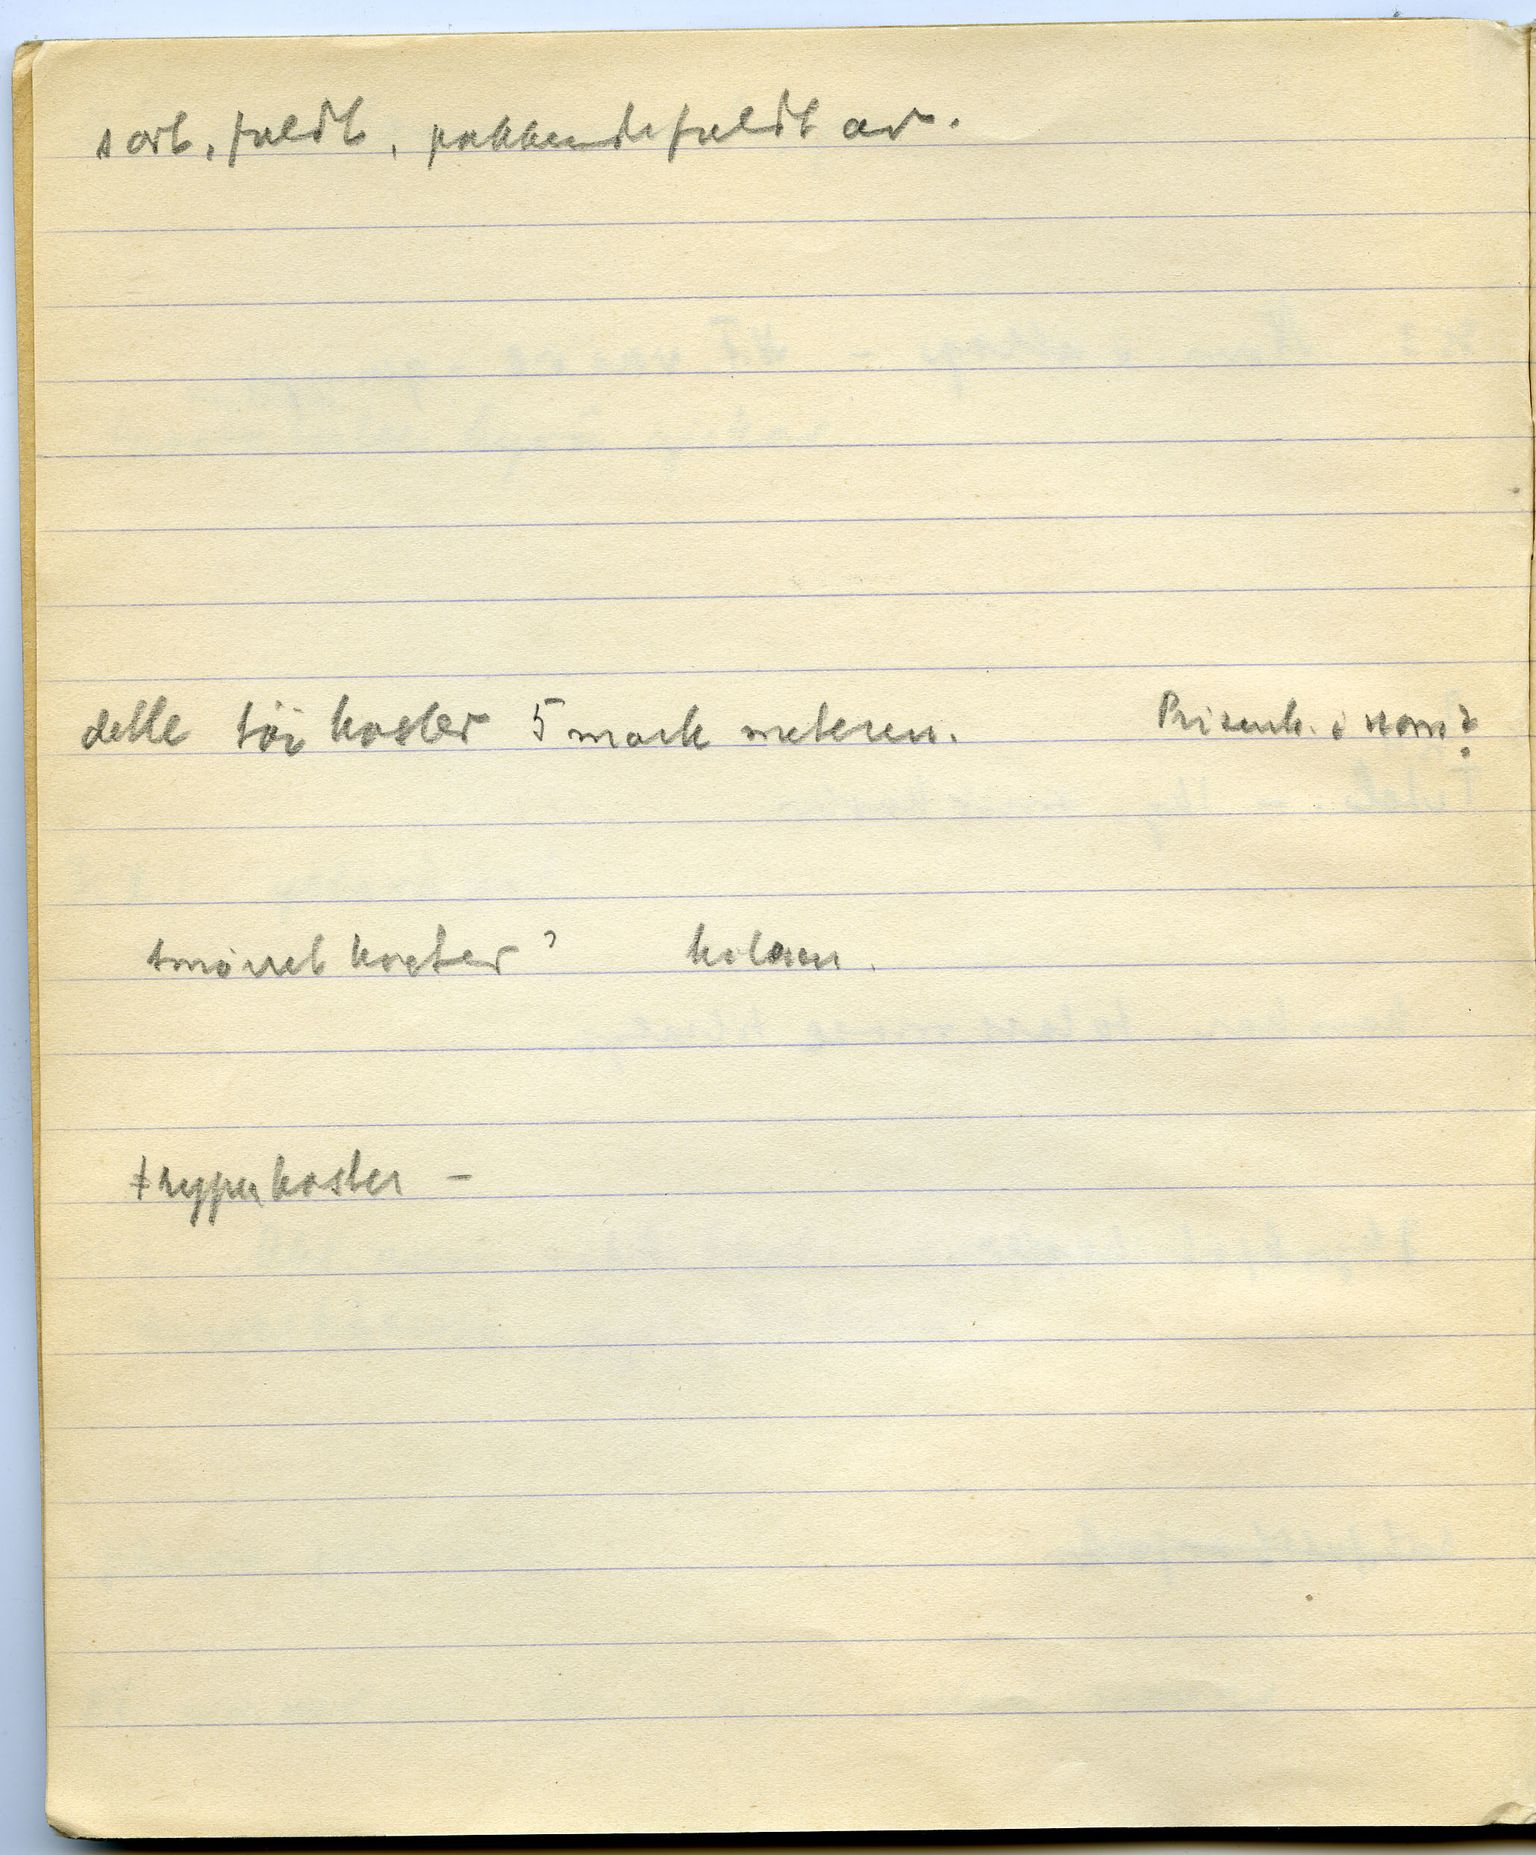 sort, fuldt, pakkende fuldt av.
dette töi koster 5 mark meteren. Prisenh. i nom?
smörret koster? kiloen.
+ rypen koster –